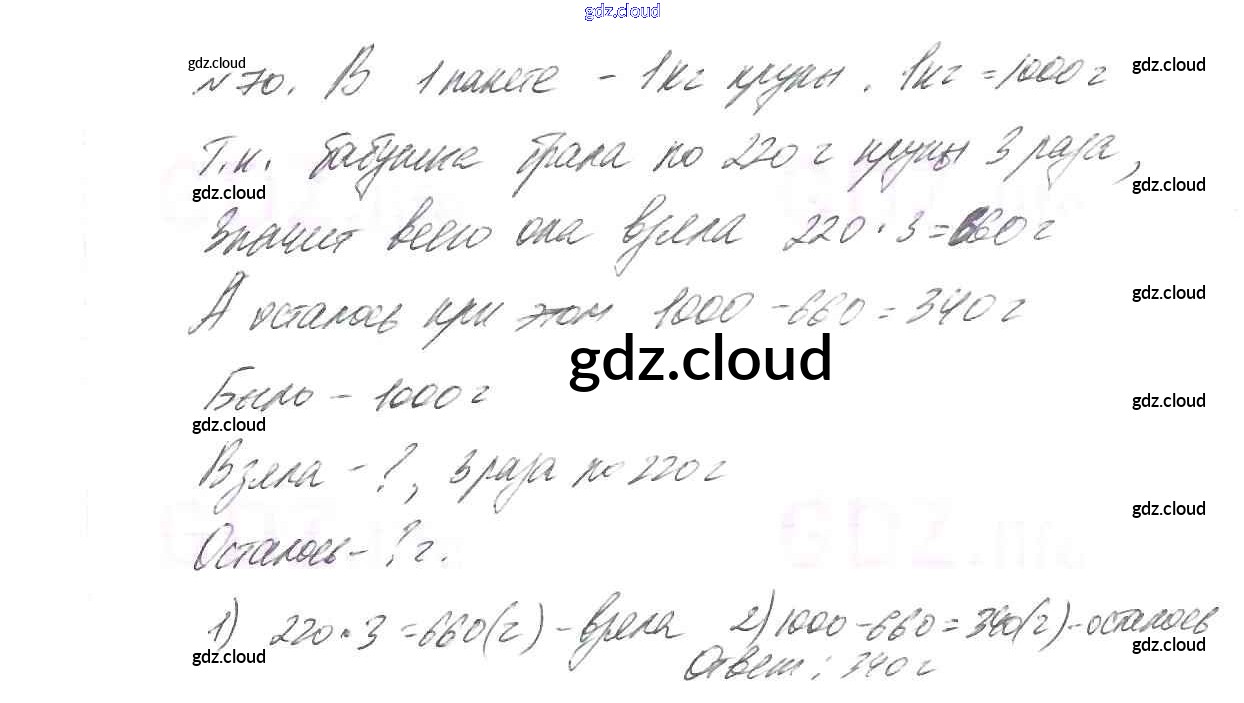 gdz.cloud
gdz.cloud
№70. В 1 пакете - 1кг крупы. 1кг = 1000 г
gdz.cloud
Т.к. бабушка брала по 220 г крупы 3 раза,
gdz.cloud
gdz.cloud
Значит всего она взяла 220 · 3 = 660 г
А осталось при этом 1000 - 660 = 340 г
gdz.cloud
gdz.cloud
Было - 1000 г
gdz.cloud
gdz.cloud
Взяла - ?, 3 раза по 220 г
GDZ.life
GDZ.life
gdz.cloud
Осталось - ? г.
1) 220 · 3 = 660 (г) - взяла 2) 1000 - 660 = 340 (г) - осталось
gdz.cloud
gdz.cloud
Ответ: 340 г